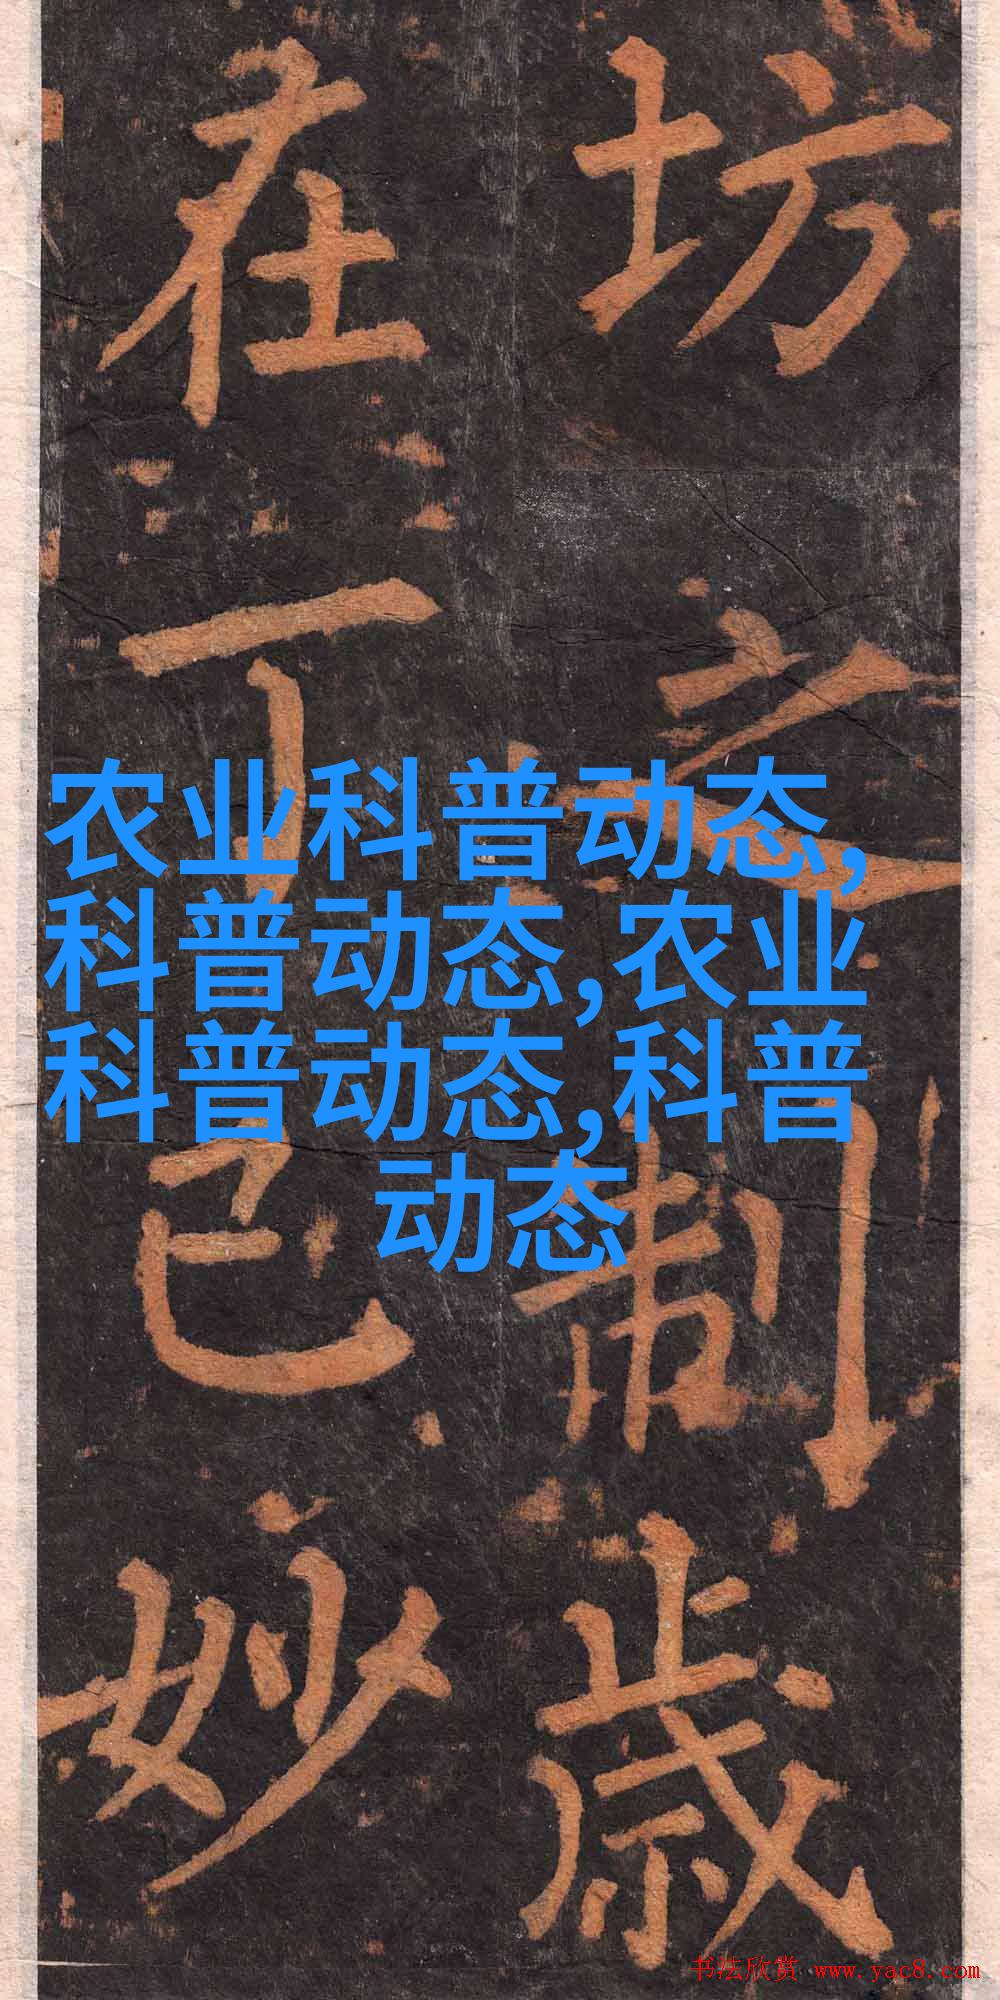 坊之制歲
在丁巳妙
农业科普动态,
科普动态,农业
科普动态,科普
动态
书法欣赏 www.yac8.com